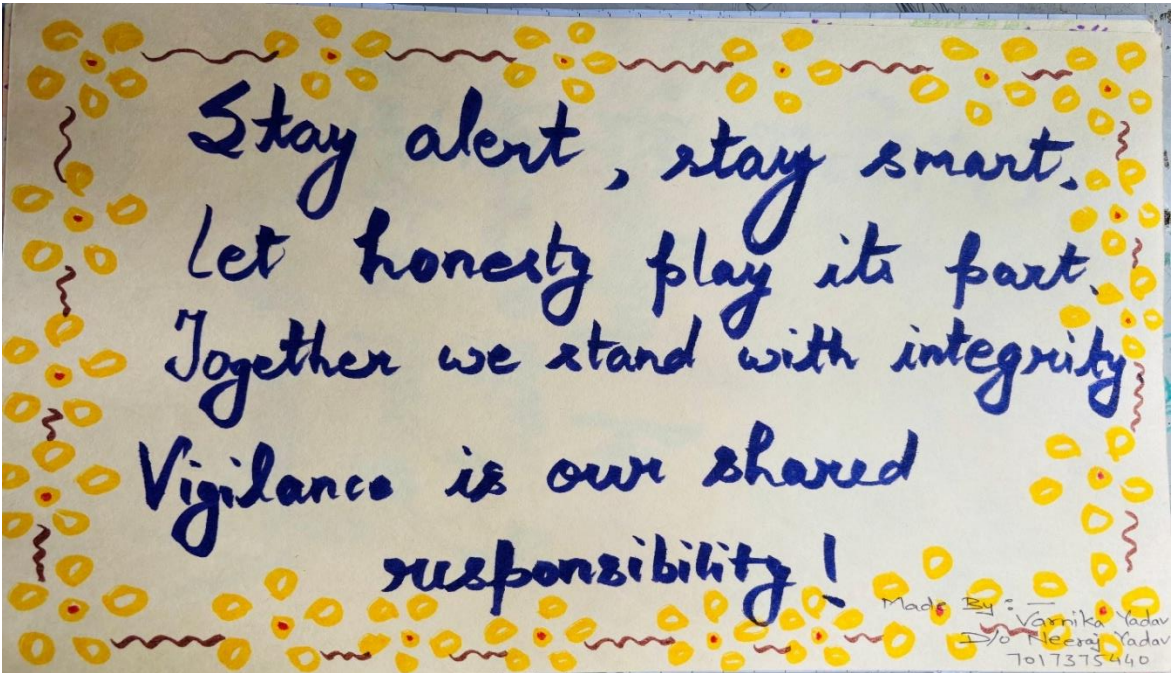 Stay alert, stay smart.
Let honesty play its part.
Together we stand with integrity
Vigilance is our shared
responsibility!
Made By :-
Varnika Yadav
D/o Neeraj Yadav
7017375440